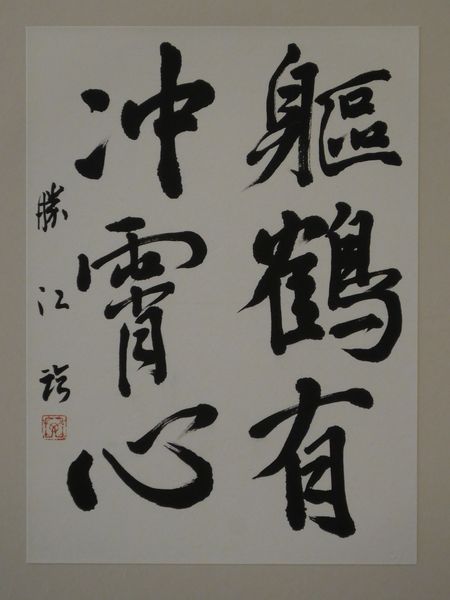 軀鶴有
冲霄心
勝江